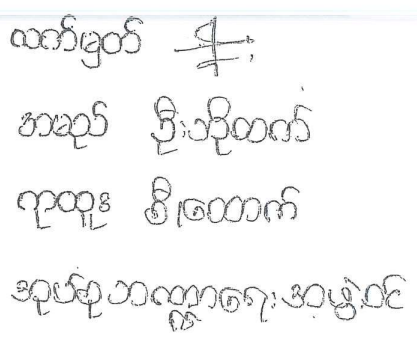 လက်မှတ်
အမည် ဦးဘိုထက်
ရာထူး စီးထောက်
အုပ်စုဘဏ္ဍာရေးအဖွဲ့ဝင်